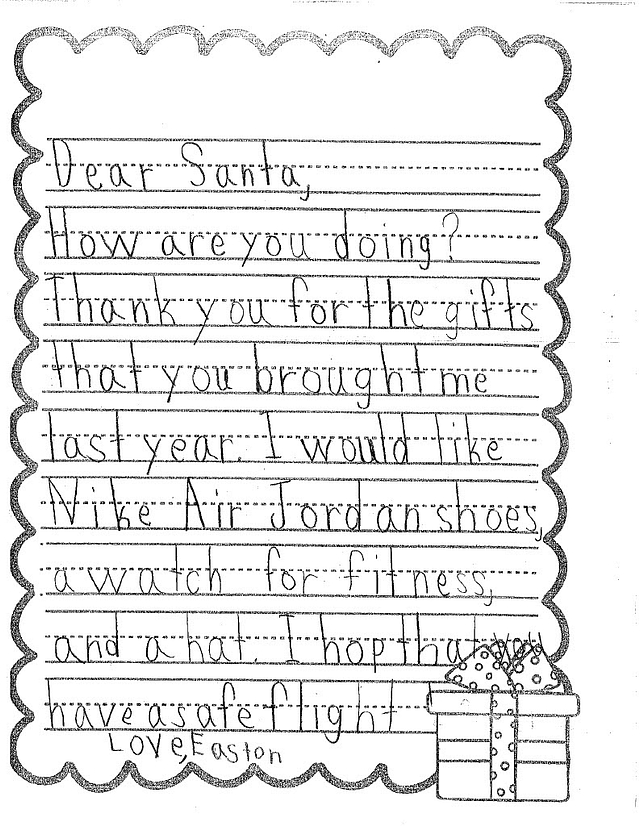 Dear Santa,
How are you doing?
Thank you for the gifts
that you brought me
last year. I would like
Nike Air Jordan shoes,
a watch for fitness,
and a hat. I hop that you
have a safe flight
Love, Easton